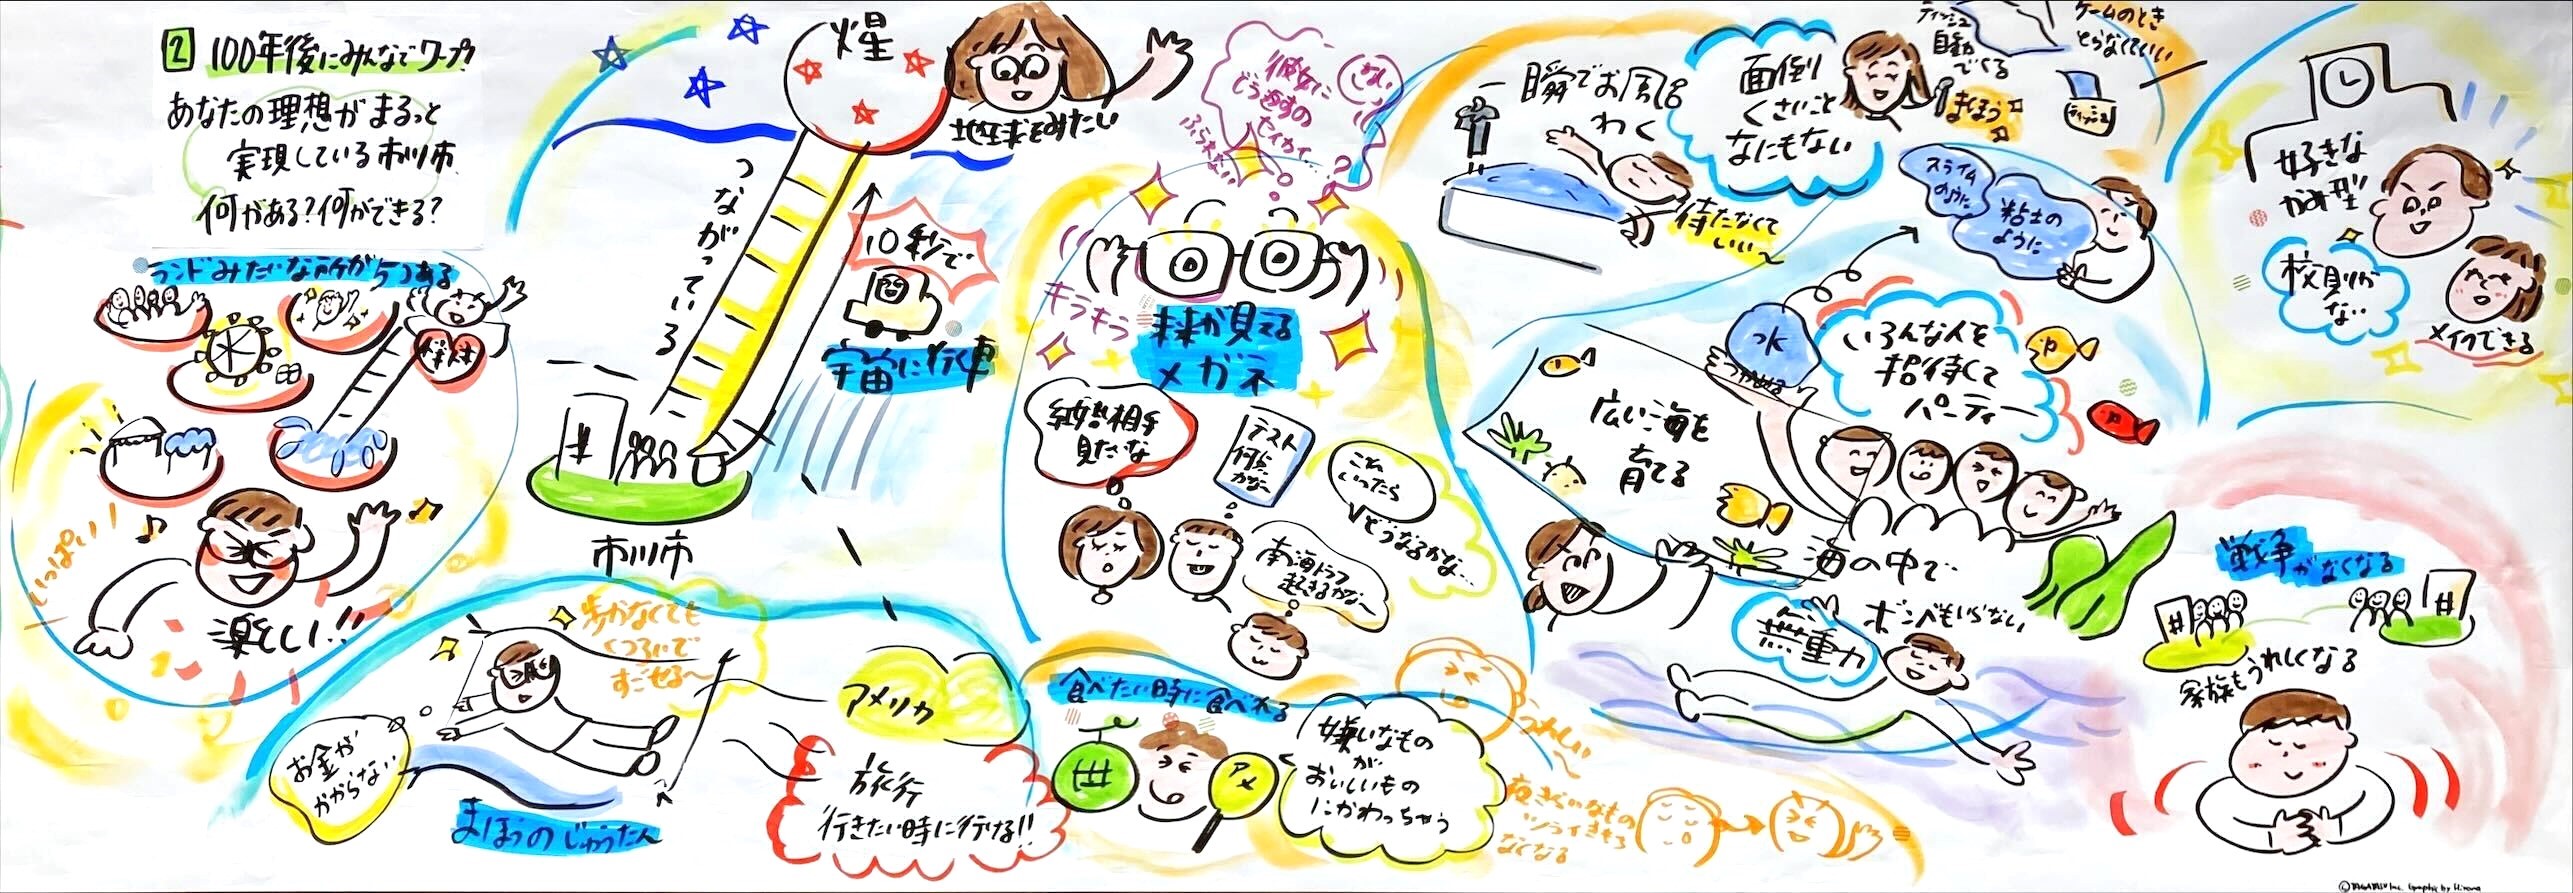 2 100年後にみんなでワープ!
あなたの理想がまるっと
実現している市川市
何がある?何ができる?
ランドみたいな所が5つある
いっぱい!
楽しい!!
つながっている
市川市
地球をみたい
10秒で
宇宙に行く車
歩かなくても
くつろいで
すごせる〜
お金が
かからない
まほうのじゅうたん
アメリカ
旅行
行きたい時に行ける!!
キラキラ
未来が見える
メガネ
結婚相手
見たいな
テスト
何点
かな〜
こん
いったら
どうなるかな…
南海トラフ
起きるかな〜
食べたい時に食べれる
アメ
嫌いなもの
が
おいしいもの
にかわっちゃう
うれしい〜
ツライきもち
なくなる
一瞬でお風呂
わく
待たなくて
いい〜
面倒
くさいこと
なにもない
ティッシュ
自動
でくる
まほう
ゲームのとき
とらなくていい
ティッシュ
スライム
のように
粘土の
ように
水
つかめる
いろんな人を
招待して
パーティー
広い海を
育てる
海の中で
ボンベもいらない
無重力
好きな
かみ型
校則が
ない
メイクできる
戦争がなくなる
家族もうれしくなる